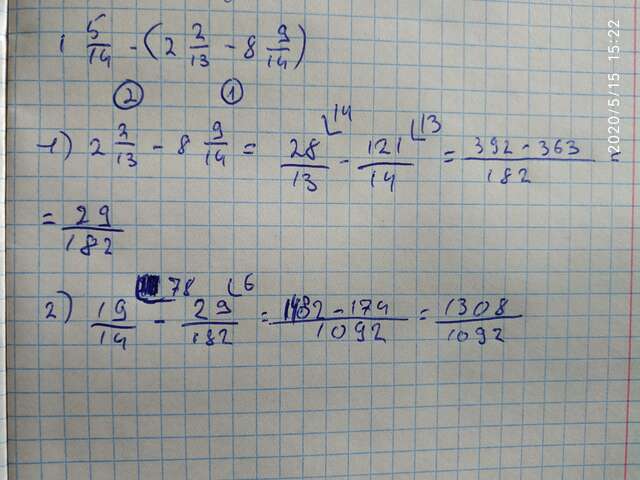 1 5/14 - (2 2/13 - 8 9/14)
② ①
1) 2 2/13 - 8 9/14 = 28/13 - 121/14 = 392 - 363/182 =
14 13
= 29/182
2) 19/14 - 29/182 = 1482 - 174/1092 = 1308/1092
78 6
2020/5/15 15:22